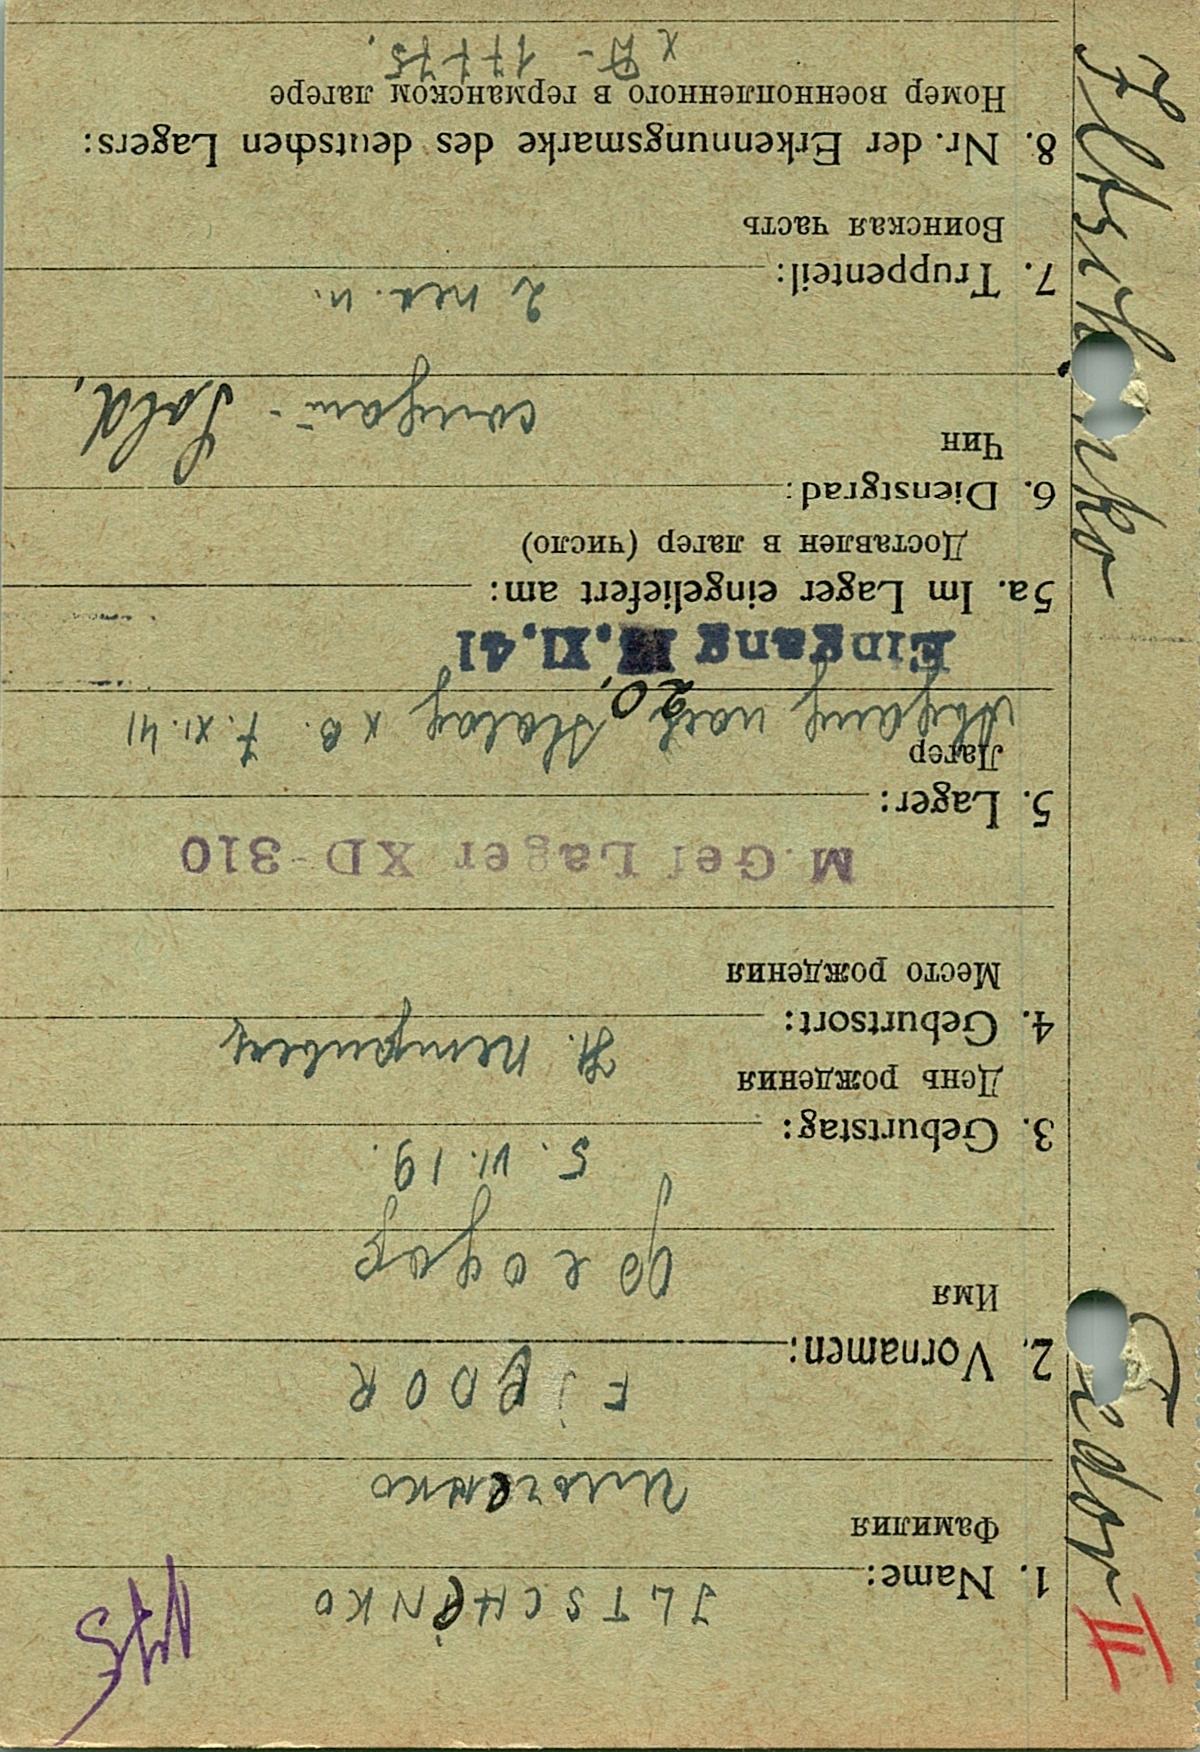 1. Name: JLTSCHENKO
Фамилия
Ильченко
2. Vornamen: FJEDOR
Имя
Феодор
3. Geburtstag: 5. VI. 19.
День рождения
4. Geburtsort: St.
Место рождения
M. Gef Lager XD-310
5. Lager:
Лагер
Abgang nach Stalag X B. 7. XI. 41
20.
Eingang XI. 41
5a. Im Lager eingeliefert am:
Доставлен в лагер (число)
6. Dienstgrad:
Чин
солдат - Sold.
7. Truppenteil: 2 пех. п.
Воинская часть
8. Nr. der Erkennungsmarke des deutschen Lagers:
Номер военнопленного в германском лагере
X D - 17775.
Iltschenko
Fedor
II